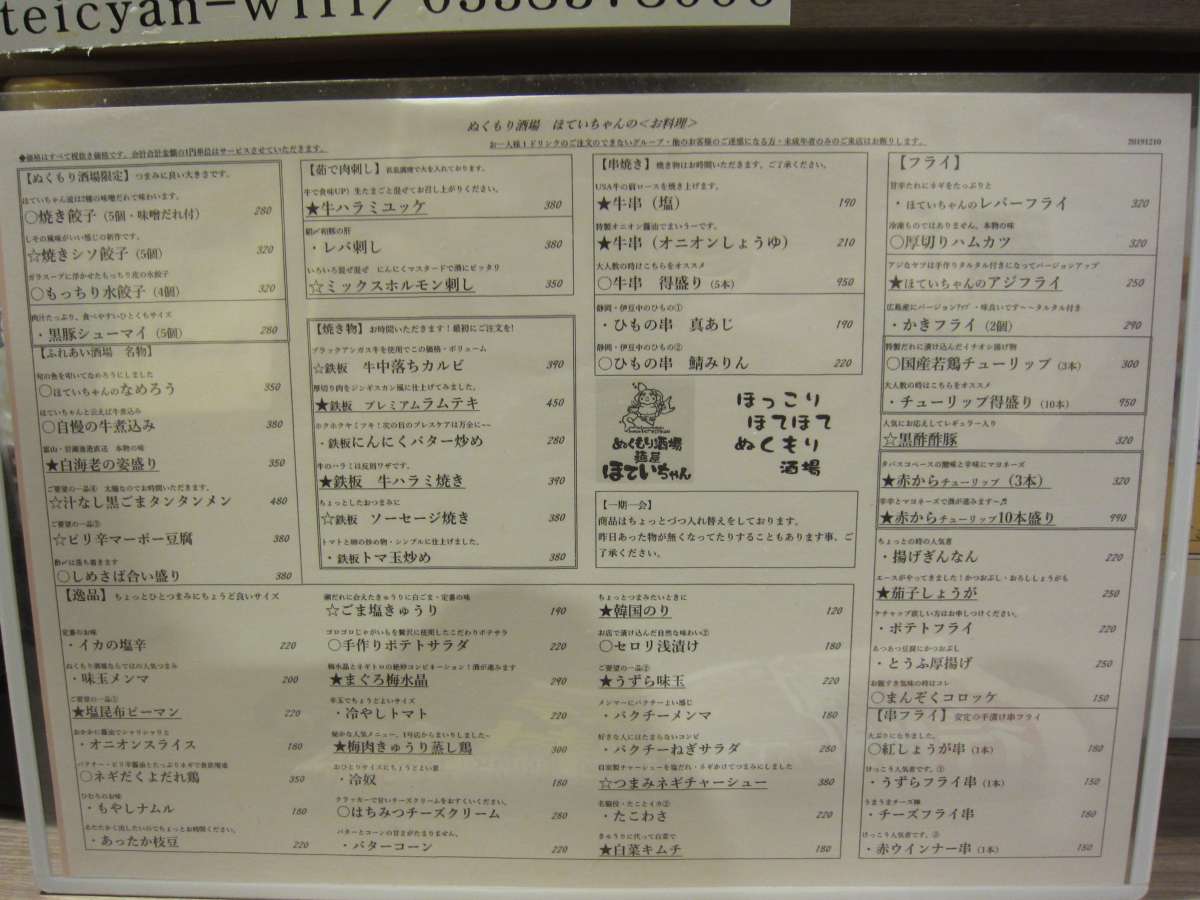 teicyan-wifi/
ぬくもり酒場 ほていちゃんの<お料理>
◆価格はすべて税抜き価格です。会計合計金額の1円単位はサービスさせていただきます。
お一人様1ドリンクのご注文のできないグループ・他のお客様のご迷惑になる方・未成年者のみのご来店はお断りします。
20191210
【ぬくもり酒場限定】つまみに良い大きさです。
ほていちゃん流は2種の味噌だれで味わいます。
○焼き餃子(5個・味噌だれ付) 280
しその風味がいい感じの新作です。
☆焼きシソ餃子(5個) 320
ガラスープに浮かせたもっちり皮の水餃子
○もっちり水餃子(4個) 320
肉汁たっぷり、食べやすいひとくちサイズ
・黒豚シューマイ(5個) 280
【ふれあい酒場 名物】
旬の魚を叩いてなめろうにしました
○ほていちゃんのなめろう 350
ほていちゃんと云えば牛煮込み
○自慢の牛煮込み 380
富山・岩瀬漁港直送 本物の味
★白海老の姿盛り 350
ご要望の一品④ 太麺なのでお時間いただきます。
☆汁なし黒ごまタンタンメン 480
ご要望の一品③
☆ピリ辛マーボー豆腐 380
酢〆は落ち着きます
○しめさば合い盛り 380
【茹で肉刺し】
牛で食味UP)生たまごと混ぜてお召し上がりください。
★牛ハラミユッケ 380
朝〆初豚の肝
・レバ刺し 380
いろいろ混ぜ混ぜ にんにくマスタードで酒にピッタリ
☆ミックスホルモン刺し 350
【焼き物】お時間いただきます!最初にご注文を!
ブラックアンガス牛を使用でこの価格・ボリューム
☆鉄板 牛中落ちカルビ 390
厚切り肉をジンギスカン風に仕上げてみました。
★鉄板 プレミアムラムテキ 450
ホクホクヤミツキ!次の日のブレスケアは万全に~
・鉄板にんにくバター炒め 280
牛のハラミは反則ワザです。
★鉄板 牛ハラミ焼き 390
ちょっとしたおつまみに
☆鉄板 ソーセージ焼き 380
トマトと卵の炒め物・シンプルに仕上げました。
・鉄板トマ玉炒め 380
【串焼き】焼き物はお時間いただきます。ご了承ください。
USA牛の肩ロースを焼き上げます。
★牛串(塩) 190
特製オニオン醤油でまいうーです。
★牛串(オニオンしょうゆ) 210
大人数の時はこちらをオススメ
○牛串 得盛り(5本) 950
静岡・伊豆中のひもの①
・ひもの串 真あじ 190
静岡・伊豆中のひもの②
○ひもの串 鯖みりん 220
ぬくもり酒場
麺屋
ほていちゃん
ほっこり
ほてほて
ぬくもり
酒場
【一期一会】
商品はちょっとづつ入れ替えをしております。
昨日あった物が無くなってたりすることもあります事、ご
了承ください。
【フライ】
甘辛たれにネギをたっぷりと
・ほていちゃんのレバーフライ 320
冷凍ものではありません。本物の味
○厚切りハムカツ 320
アジなヤツは手作りタルタル付きになってバージョンアップ
★ほていちゃんのアジフライ 250
広島産にバージョンアップ・味良いです~~タルタル付き
・かきフライ(2個) 290
特製だれに漬け込んだイチオシ揚げ物
○国産若鶏チューリップ(3本) 300
大人数の時はこちらをオススメ
・チューリップ得盛り(10本) 950
人気にお応えしてレギュラー入り
☆黒酢酢豚 320
タバスコベースの酸味と辛味にマヨネーズ
★赤からチューリップ(3本) 320
辛辛とマヨネーズで酒が進みます~♬
★赤からチューリップ10本盛り 990
ちょっとの時の人気者
・揚げぎんなん 220
エースがやってきました!かつおぶし・おろししょうがも
★茄子しょうが 250
ケチャップ欲しい方はお申しつけください。
・ポテトフライ 220
あつあつ豆腐にかつおぶし
・とうふ厚揚げ 250
お腹すき気味の時はコレ
○まんぞくコロッケ 150
【串フライ】安定の手漬け串フライ
大ぶりになりました。
○紅しょうが串(1本) 180
けっこう人気者です。①
・うずらフライ串(1本) 150
うまうまチーズ棒
・チーズフライ串 180
けっこう人気者です。②
・赤ウインナー串(1本) 180
【逸品】ちょっとひとつまみにちょうど良いサイズ
定番のお味
・イカの塩辛 220
ぬくもり酒場ならではの人気つまみ
・味玉メンマ 200
ご要望の一品①
★塩昆布ピーマン 220
おかかに醤油でシャリシャリと
・オニオンスライス 180
○ネギだくよだれ鶏 350
ひむろのお味
・もやしナムル 180
あたたかく出したいのでちょっとお時間ください。
・あったか枝豆 220
潮だれに合えたきゅうりに白ごま・定番の味
☆ごま塩きゅうり 190
ゴロゴロじゃがいもを贅沢に使用したこだわりポテサラ
○手作りポテトサラダ 220
梅水晶とネギトロの絶妙コンビネーション!酒が進みます
★まぐろ梅水晶 290
辛玉でちょうどよいサイズ
・冷やしトマト 220
秘かな人気メニュー、1号店からまいりました~
★梅肉きゅうり蒸し鶏 300
おひとりサイズにちょうどよい量
・冷奴 180
クラッカーで甘いチーズクリームをおすくいください。
○はちみつチーズクリーム 280
バターとコーンの甘さがたまりません。
・バターコーン 220
ちょっとつまみたいときに
★韓国のり 120
お店で漬け込んだ自然な味わい②
○セロリ浅漬け 180
ご要望の一品②
★うずら味玉 220
メンマーにパクチーよい感じ
・パクチーメンマ 180
好きな人にはたまらないコンビ
・パクチーねぎサラダ 280
自家製チャーシューを塩だれ・ネギかけてつまみにしました
☆つまみネギチャーシュー 380
名脇役・たことイカ②
・たこわさ 220
きゅうりに代って白菜で
★白菜キムチ 180